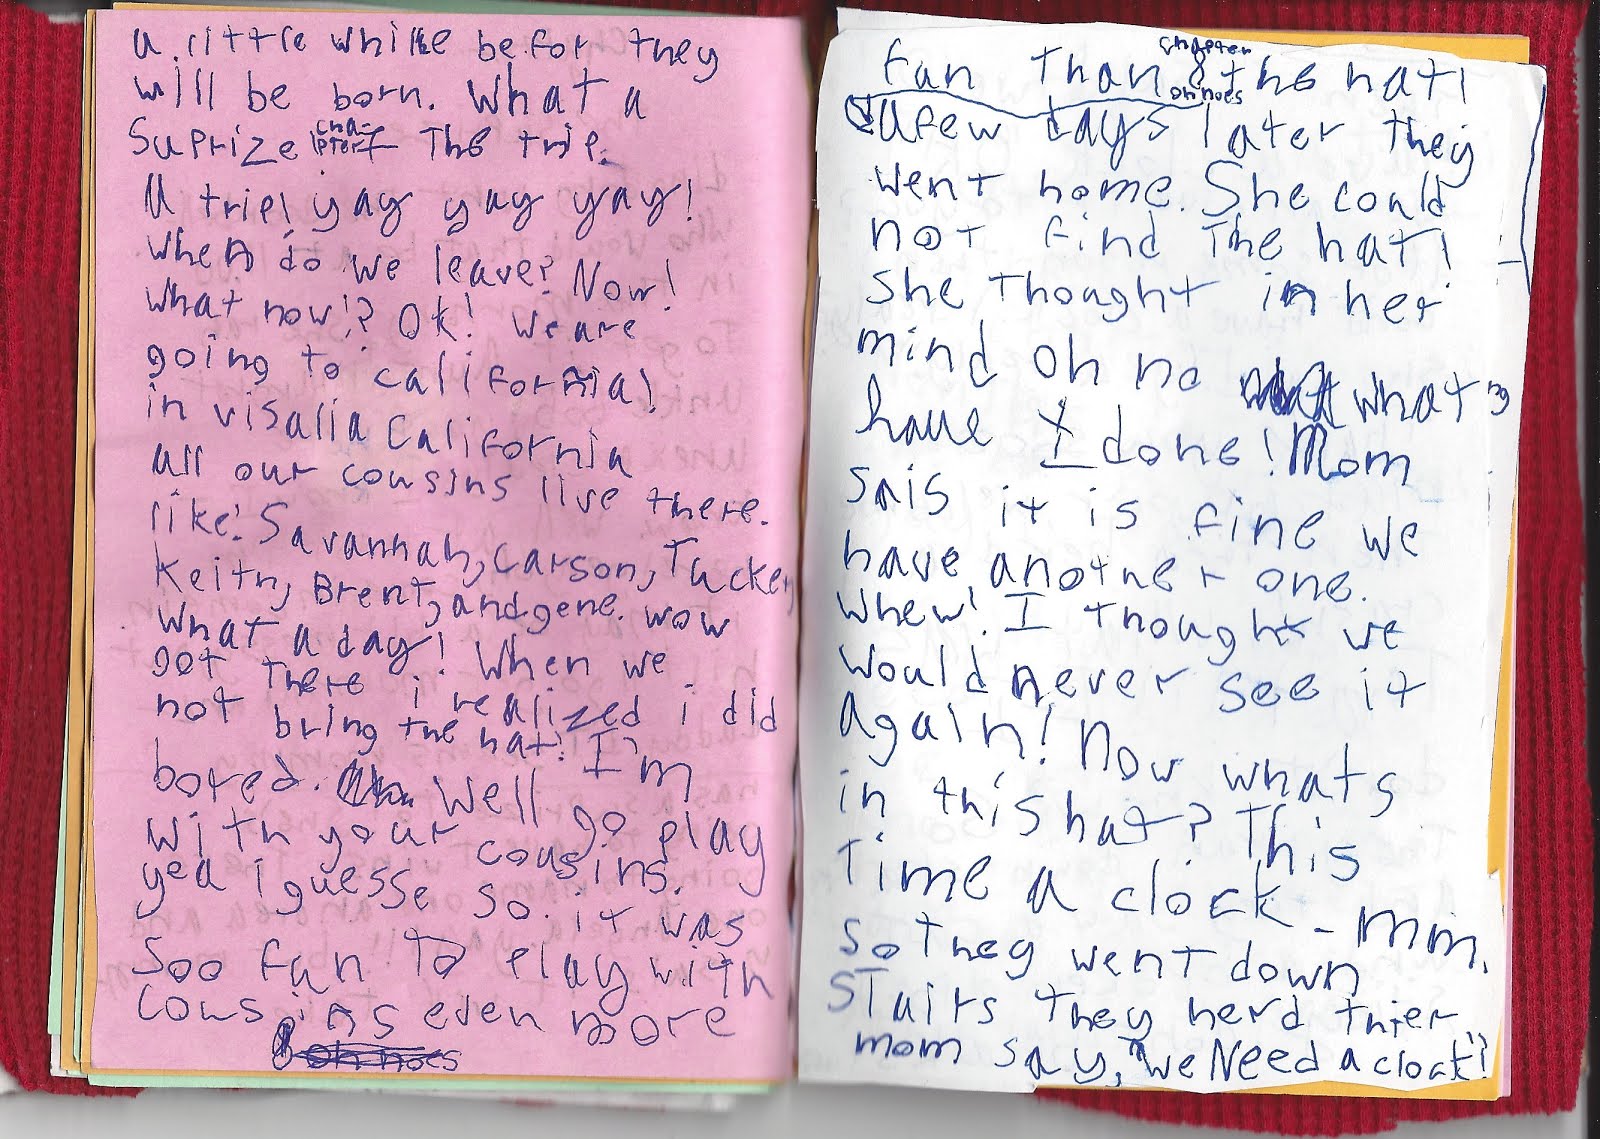 a little while befor they
will be born. What a
Suprize chapter 7 The trip.
A trip! yay yay yay!
When do we leave? Now!
what now!? Ok! we are
going to california!
in visalia California
all our cousins live there.
like: Savannah, Carson, Tucker,
Keith, Brent, and gene. wow
What a day! When we
got there i realized i did
not bring the hat! I'm
bored. Well go play
with your cousins.
yea i guesse so. it was
Soo fun To play with
cousins even more
oh noes
fun than the hat!
chapter 8
oh noes
a few days later they
went home. She could
not find the hat!
She thought in her
mind oh no what
have I done! Mom
sais it is fine we
have another one.
Whew! I thought we
would never see it
again! Now whats
in this hat? This
Time a clock - mm.
So they went down
Stairs they herd thier
mom say, "we Need a clock"!